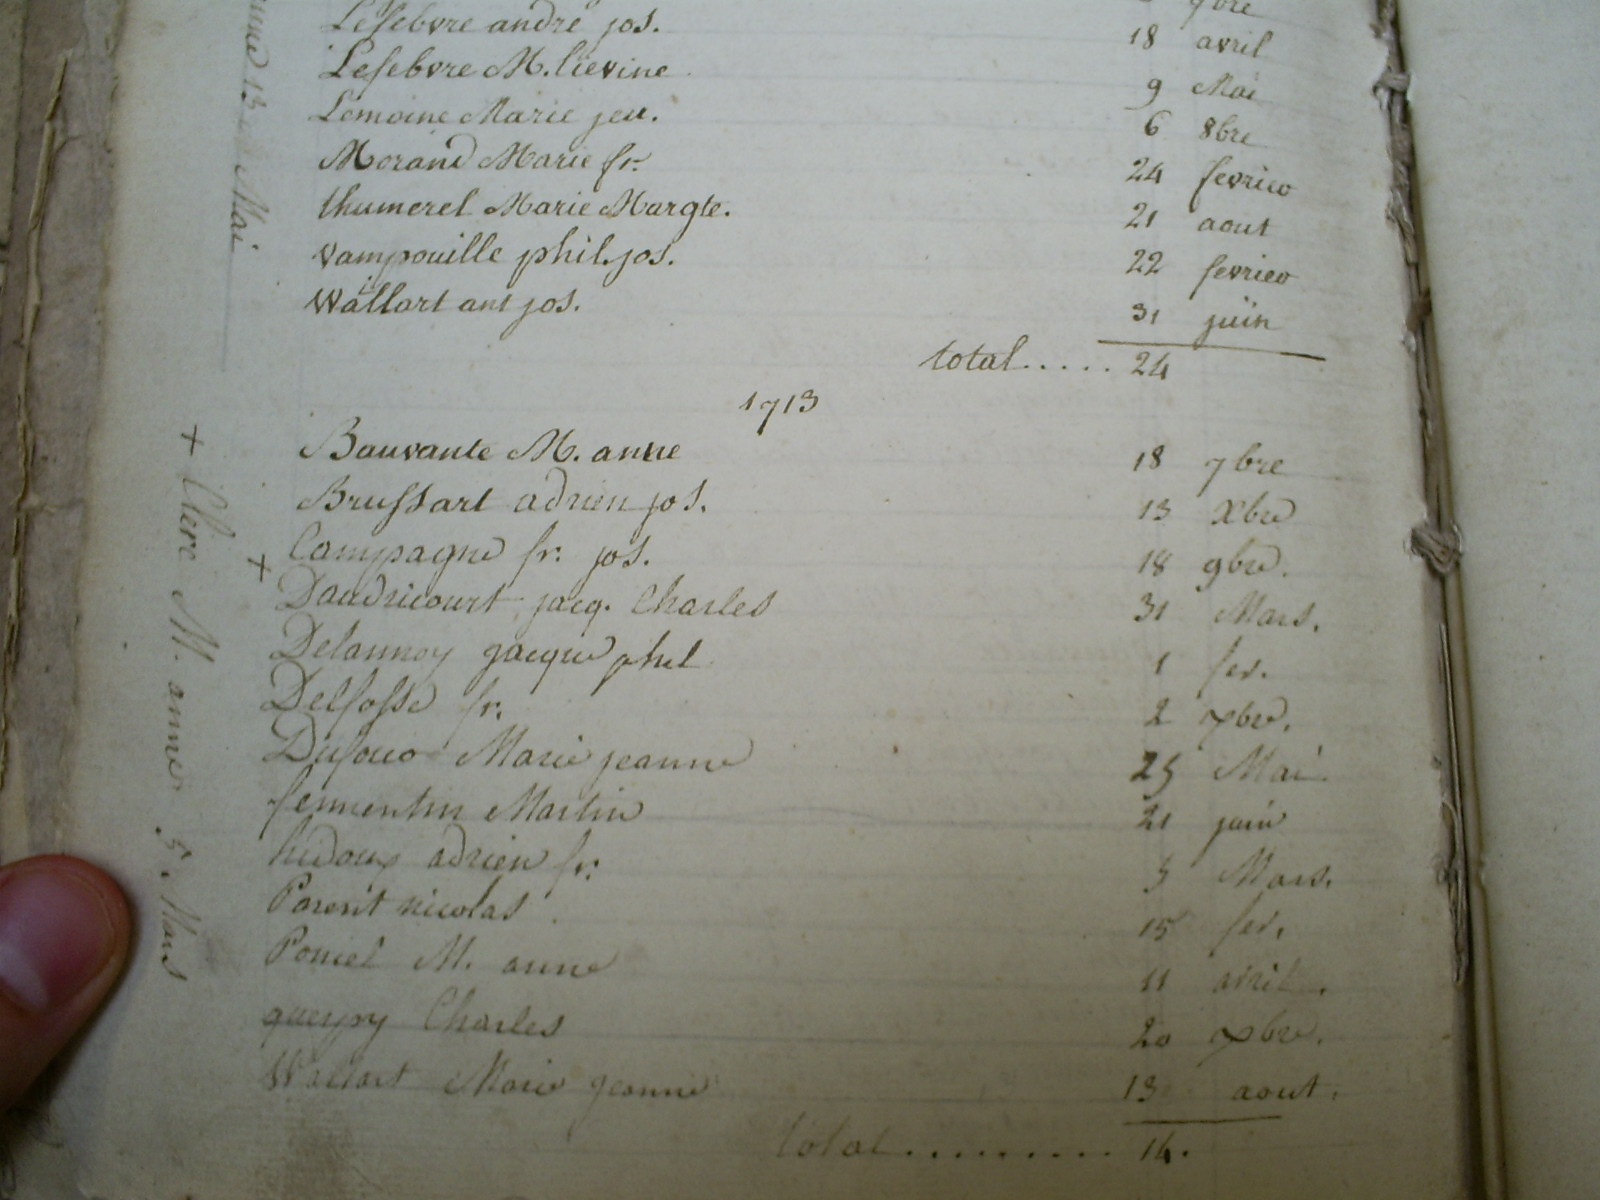 7bre
Lefebvre andré jos. 18 avril
Lefebvre M. lievine 9 Mai
Lemoine Marie jeu. 6 8bre
Morand Marie fr. 24 fevrier
thumerel Marie Margte. 21 aout
Vampouille phil. jos. 22 fevrier
Wallart ant jos. 31 juin
total..... 24
1713
Bauvante M. anne 18 7bre
Brussart adrien jos. 13 Xbre
Campagne fr. jos. 18 9bre.
+ Daudricourt jacq. Charles 31 Mars.
Delannoy jacque phil 1 fev.
Delfosse fr. 2 xbre.
Dufour Marie jeanne 25 Mai
fermentin Martin 21 juin
hidoux adrien fr. 3 Mars.
Parent nicolas 15 fev.
Poncel M. anne 11 avril.
queypy Charles 20 xbre.
Wallart Marie jeanne 13 aout.
total.......... 14.
13 Mai
+ Clerc M. anne 5 Mars